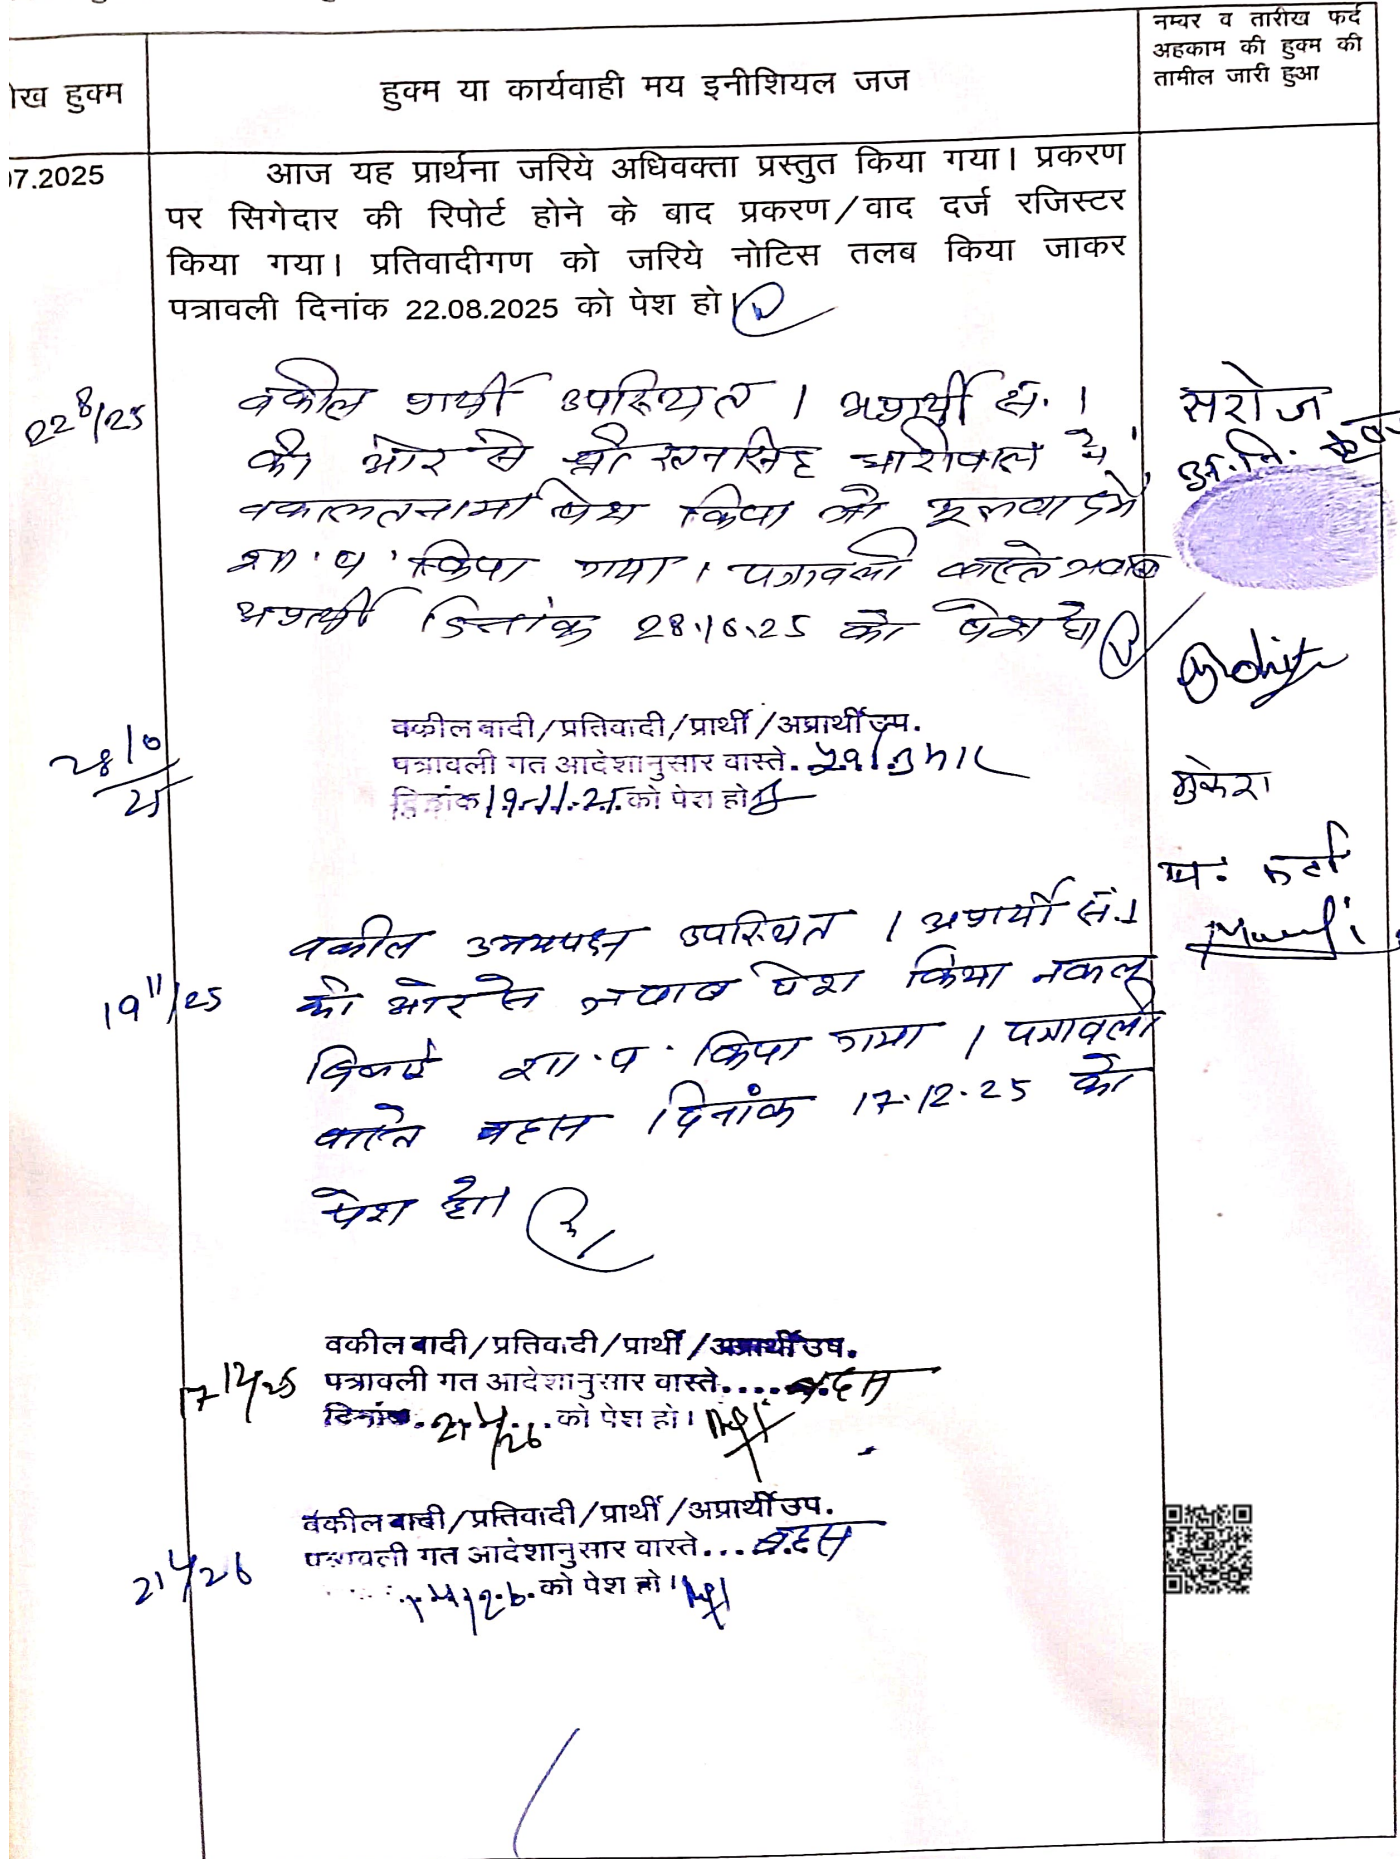 नम्बर व तारीख फर्द
अहकाम की हुक्म की
तामील जारी हुआ
ीख हुक्म
हुक्म या कार्यवाही मय इनीशियल जज
07.2025
आज यह प्रार्थना जरिये अधिवक्ता प्रस्तुत किया गया। प्रकरण
पर सिगेदार की रिपोर्ट होने के बाद प्रकरण/वाद दर्ज रजिस्टर
किया गया। प्रतिवादीगण को जरिये नोटिस तलब किया जाकर
पत्रावली दिनांक 22.08.2025 को पेश हो।
22 8/25
वकील प्रार्थी उपस्थित । अप्रार्थी सं. 1
की ओर से श्री रतनसिंह धारीवाल ने
वकालतनामा पेश किया जो
शा. प. किया गया । पत्रावली वास्ते जवाब
अप्रार्थी दिनांक 28.10.25 को पेश हो।
सरोज
अ.नि.
Rohit
मुकेश
28/10/25
वकील वादी/प्रतिवादी/प्रार्थी/अप्रार्थी उप.
पत्रावली गत आदेशानुसार वास्ते.
दिनांक 19.11.25. को पेश हो
19 11/25
वकील उभयपक्ष उपस्थित । अप्रार्थी सं. 1
की ओर से जवाब पेश किया नकल
दिलाई शा. प. किया गया । पत्रावली
वास्ते बहस दिनांक 17.12.25 को
पेश हो।
17 12/25
वकील वादी/प्रतिवादी/प्रार्थी/अप्रार्थी उप.
पत्रावली गत आदेशानुसार वास्ते..... बहस
दिनांक. 21/1/26 को पेश हो।
21 1/26
वकील वादी/प्रतिवादी/प्रार्थी/अप्रार्थी उप.
पत्रावली गत आदेशानुसार वास्ते... बहस
को पेश हो।